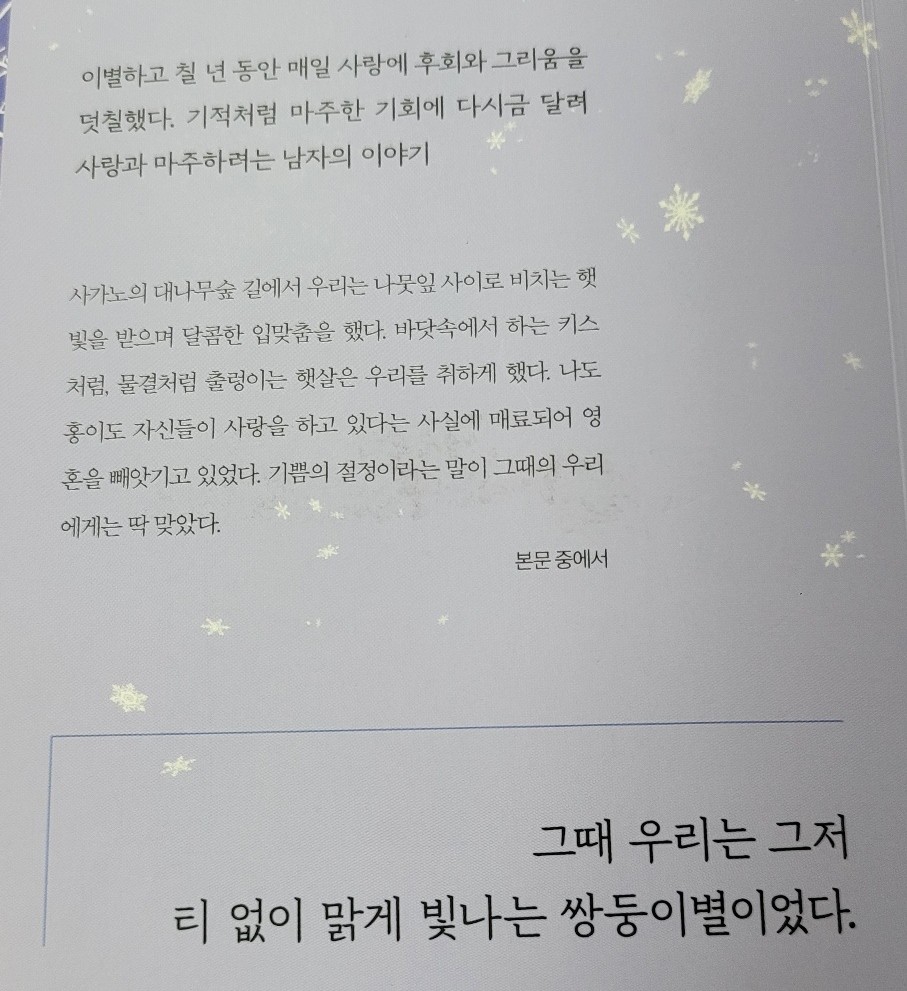 이별하고 칠 년 동안 매일 사랑에 후회와 그리움을
덧칠했다. 기적처럼 마주한 기회에 다시금 달려
사랑과 마주하려는 남자의 이야기
사가노의 대나무숲 길에서 우리는 나뭇잎 사이로 비치는 햇
빛을 받으며 달콤한 입맞춤을 했다. 바닷속에서 하는 키스
처럼, 물결처럼 출렁이는 햇살은 우리를 취하게 했다. 나도
홍이도 자신들이 사랑을 하고 있다는 사실에 매료되어 영
혼을 빼앗기고 있었다. 기쁨의 절정이라는 말이 그때의 우리
에게는 딱 맞았다.
본문 중에서
그때 우리는 그저
티 없이 맑게 빛나는 쌍둥이별이었다.